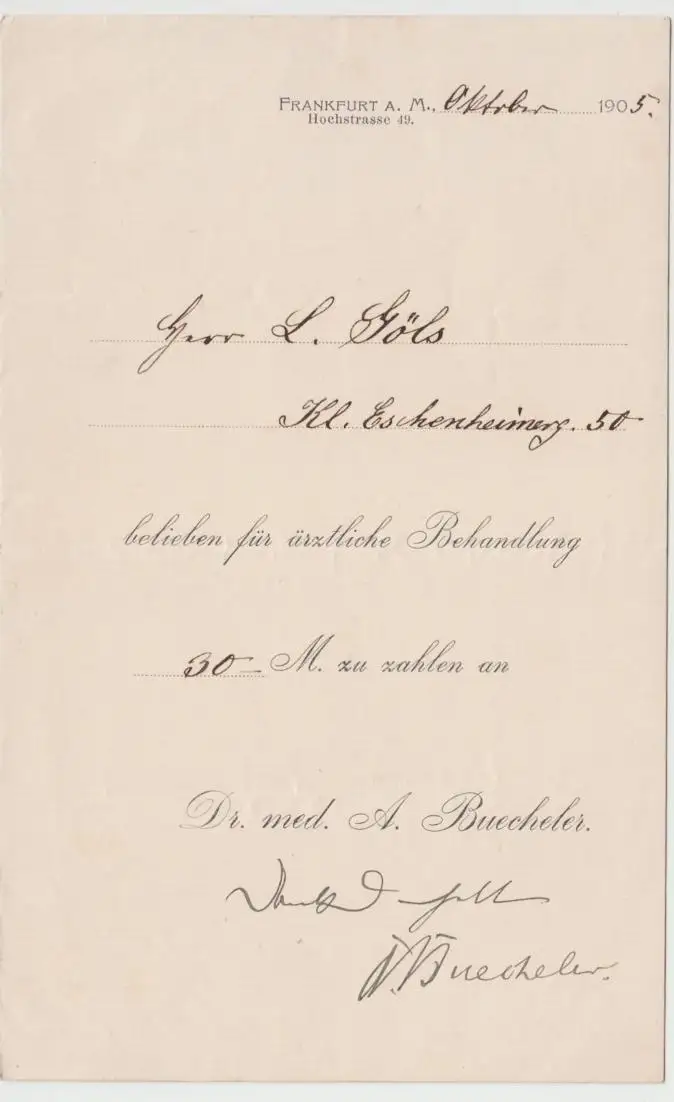 FRANKFURT A. M., Oktober 1905.
Hochstrasse 49.
Herr L. Göls
Kl. Eschenheimerg. 50
belieben für ärztliche Behandlung
30 – M. zu zahlen an
Dr. med. A. Buecheler.
Dankend
A. Buecheler.